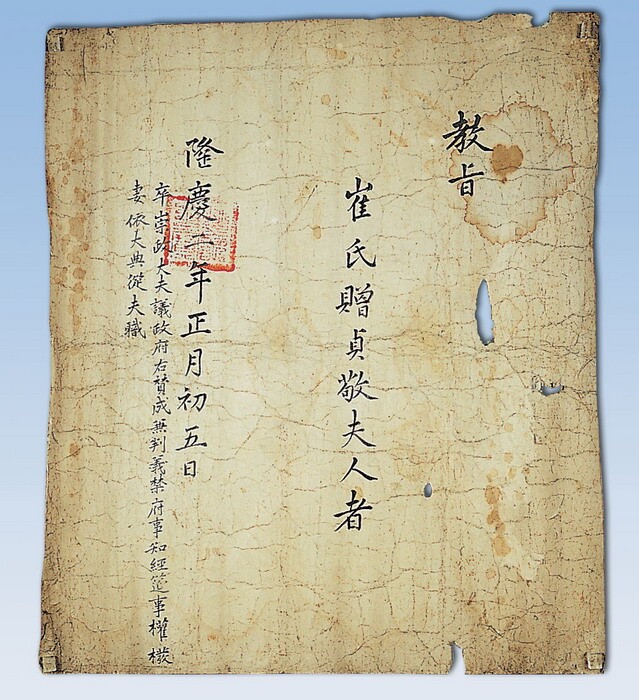 教旨
崔氏贈貞敬夫人者
隆慶二年正月初五日
卒崇政大夫議政府右贊成兼判義禁府事知經筵事權橃
妻依大典從夫職